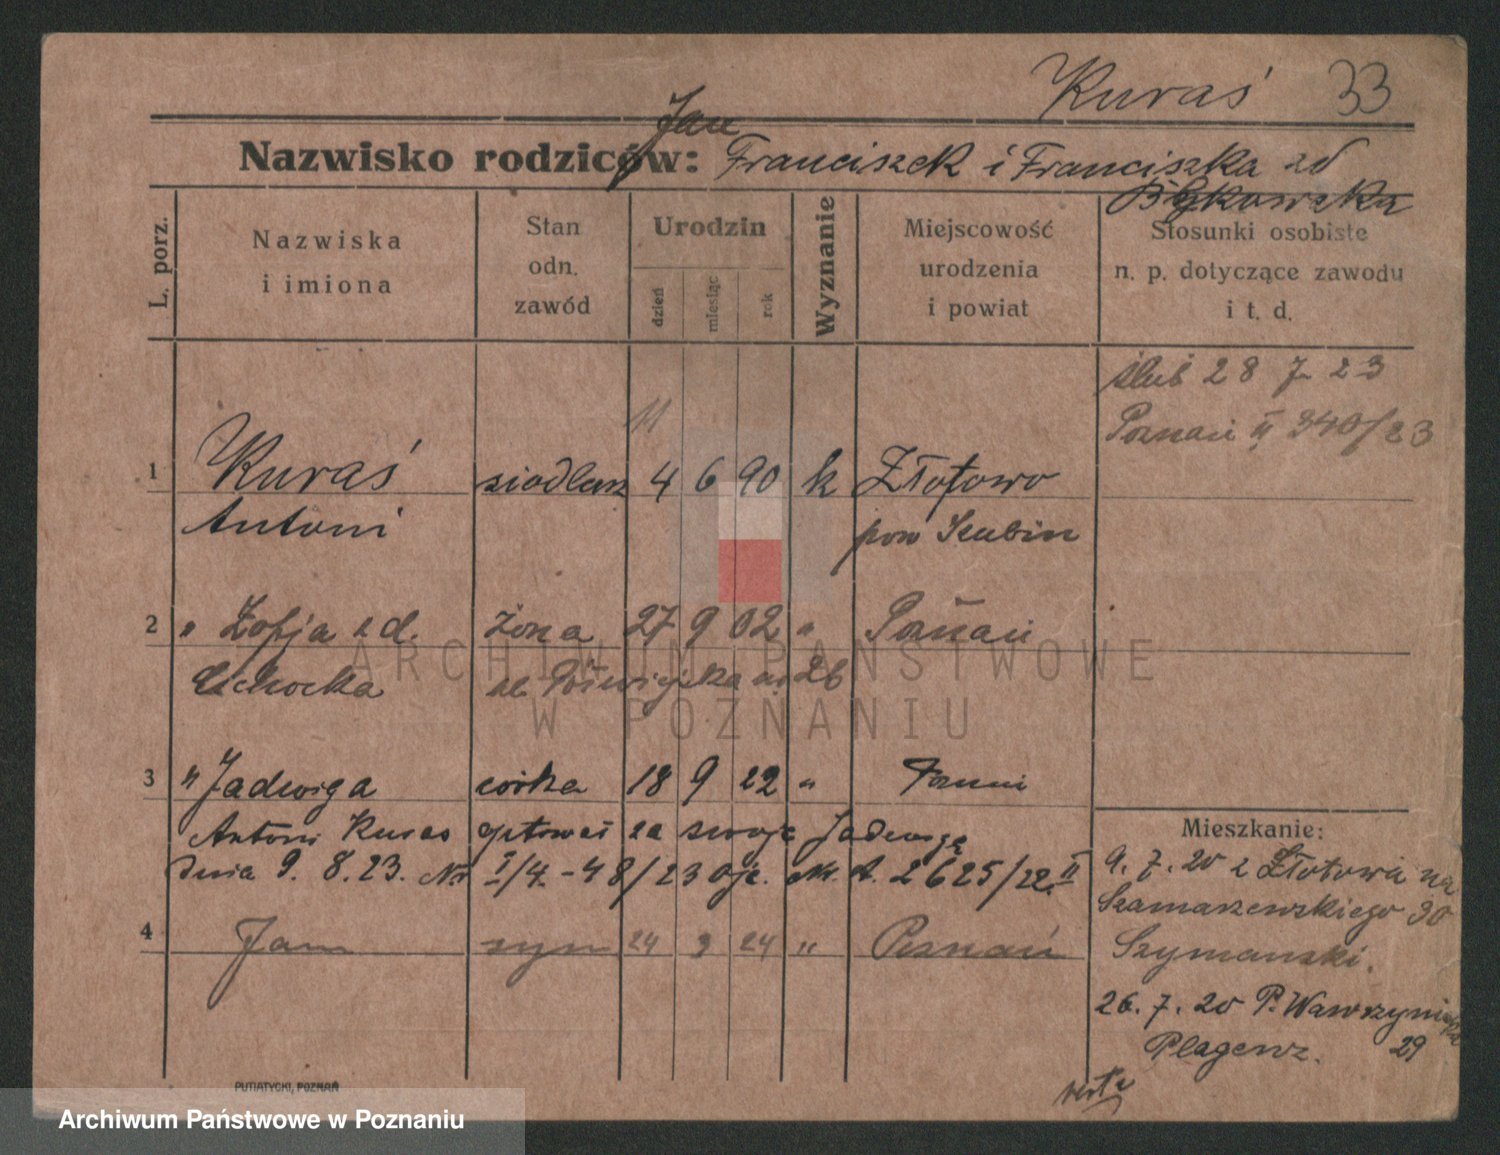 Kuraś 33
Jan
Nazwisko rodziców: Franciszek i Franciszka zd
Bykowska
L. porz.
Nazwiska
i imiona
Stan
odn.
zawód
Urodzin
dzień
miesiąc
rok
Wyznanie
Miejscowość
urodzenia
i powiat
Stosunki osobiste
n. p. dotyczące zawodu
i t. d.
ślub 28 7 23
Poznań II 340/23
11
1 Kuraś siodlarz 4 6 90 k Złotowo
Antoni pow Szubin
2 " Zofja z d. żona 27 9 02 " Poznań
Cichocka 26
3 " Jadwiga córka 18 9 22 "
Antoni Kuras za swoje Jadwigą
Dnia 9. 8. 23. No I/4. - 48/23 2625/22. II
4 Jan syn 24 9 24 " Poznań
Mieszkanie:
9. 7. 20 z Złotowa na
Szamarzewskiego 30
Szymanski.
26. 7. 20 P. Wawrzyniaka
29
Plagewz.
PUTIATYCKI, POZNAŃ
ARCHIWUM PAŃSTWOWE
W POZNANIU
Archiwum Państwowe w Poznaniu